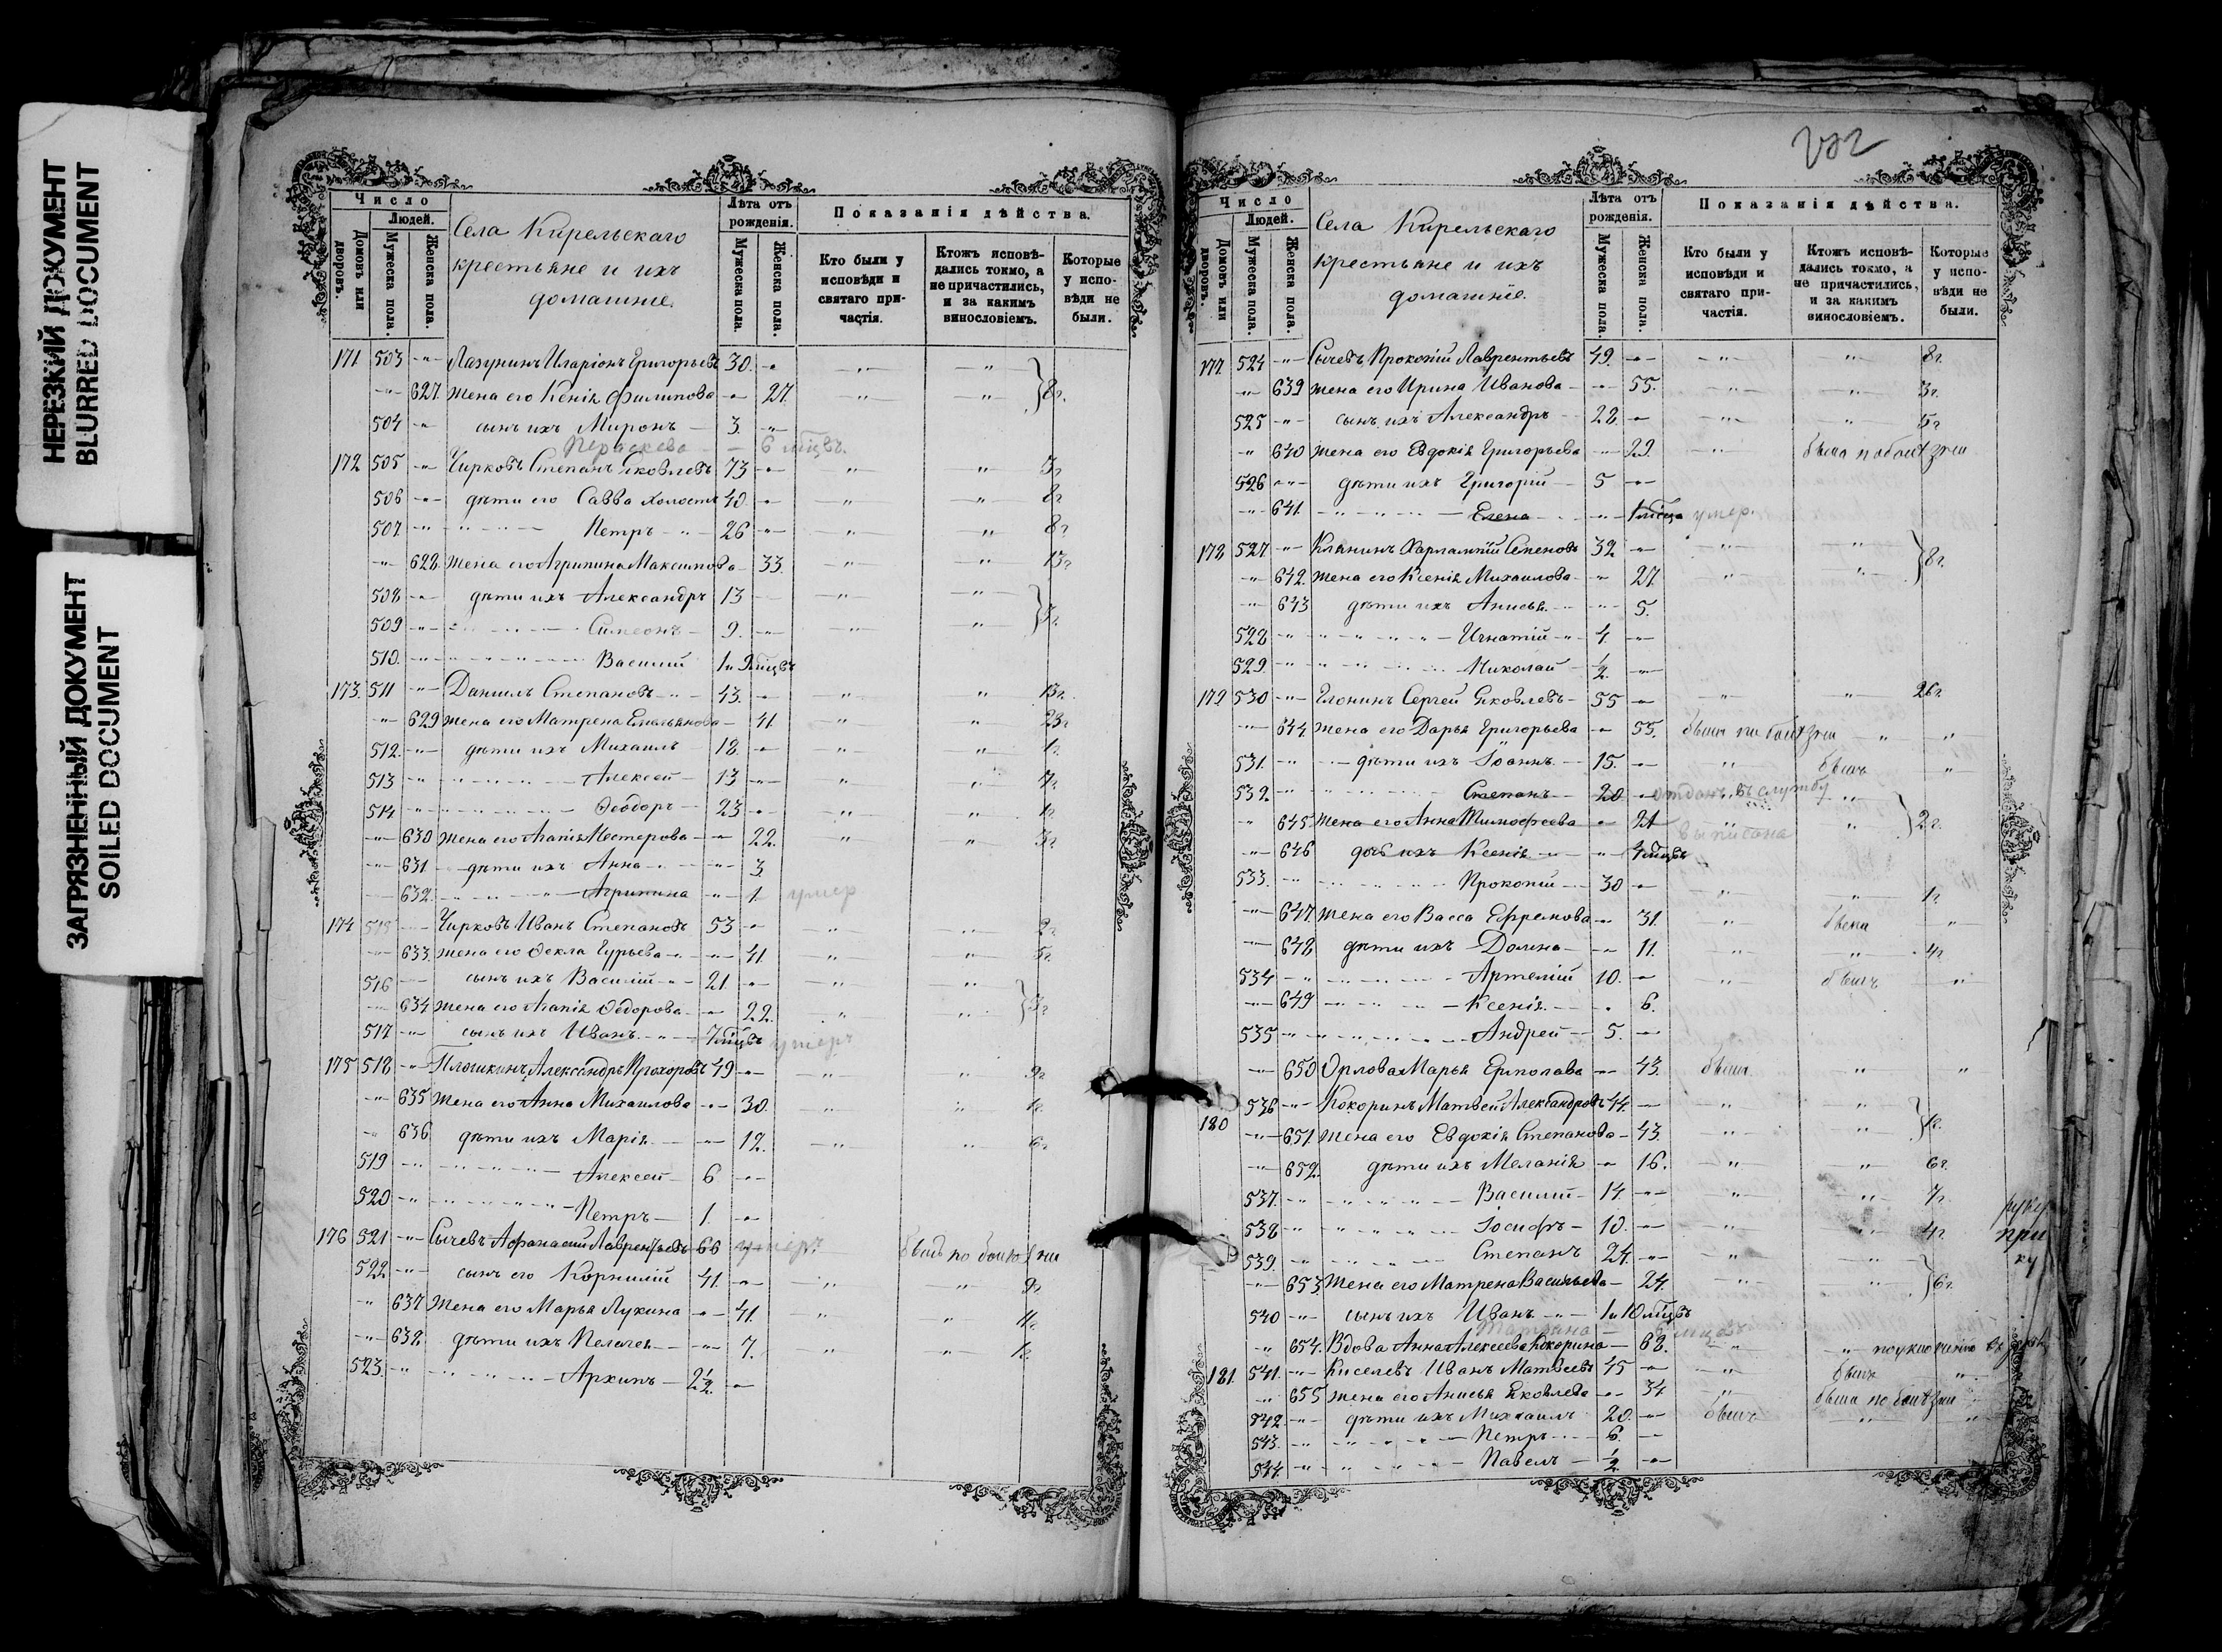 НЕРЕЗКИЙ ДОКУМЕНТ
BLURRED DOCUMENT
ЗАГРЯЗНЕННЫЙ ДОКУМЕНТ
SOILED DOCUMENT
Число
Людей.
Домовъ или дворовъ.
Мужеска пола.
Женска пола.
Села Кирельскаго
крестьяне и ихъ
домашніе.
Лѣта отъ рожденія.
Мужеска пола.
Женска пола.
Показанія дѣйства.
Кто были у исповѣди и святаго причастія.
Ктожъ исповѣдались токмо, а не причастились, и за какимъ винословіемъ.
Которые у исповѣди не были.
171 503 -"- Лазунинъ Иларіонъ Григорьевъ 30. -"- -"- -"- } 8 г.
-"- 627. жена его Ксенія Филипова -"- 27. -"- -"-
504 -"- сынъ ихъ Миронъ 3. -"-
Параскева 6 мѣцвъ.
172 505 -"- Чирковъ Степанъ Яковлевъ 73 -"- " " 3 г
506 -"- дѣти его Савва холостъ 40 -"- " " 8 г
507 -"- Петръ 26 -"- " " 8 г
-"- 628. жена его Агрипина Максимова 33. -"- " 13 г
508 -"- дѣти ихъ Александръ 13 -"- -"- } 3 г.
509 -"- Симеонъ 9. -"- -"- "
510. -"- Василий 1 и 9 мѣцвъ
173. 511 -"- Даниилъ Степановъ 43. -"- " " 13 г.
-"- 629 жена его Матрена Емельянова 41 " " 23 г
512. -"- дѣти ихъ Михаилъ 18. -"- " " 1 г.
513 -"- Алексей 13 -"- " "
514 -"- Ѳеодоръ 23 -"- " " 1 г
-"- 630 жена его Агапія Нестерова -"- 22. " " 3 г
-"- 631 дѣти ихъ Анна -"- 3
632. Агрипина -"- 1 умер
174 515 Чирковъ Иванъ Степановъ 53 -"- " " 2 г
-"- 633. жена его Ѳекла Гурьева -"- 41. " " 5 г.
516 сынъ ихъ Василий 21. -"- " "
634 жена его Агапія Ѳедорова -"- 22. " " } 3 г
517 -"- сынъ ихъ Иванъ 7 мѣцвъ умеръ
175 518 -"- Плошкинъ Александръ Прохоровъ 49 -"- " " 9 г
-"- 635 жена его Анна Михаилова -"- 30. " " 1 г.
-"- 636 дѣти ихъ Марія -"- 12. " " 6 г
519 -"- Алексей 6 -"-
520 -"- Петръ 1. -"-
176 521 -"- Сычевъ Афанасий Лаврентьевъ 66 умеръ. бывъ по болѣзни
522 -"- сынъ его Корнилій 41. -"- " " 9 г
" 637 жена его Марья Лукина -"- 41. " "
-"- 638. дѣти ихъ Пелагея -"- 7. " " 1 г.
523. -"- Архипъ 2½. -"-
Число
Людей.
Домовъ или дворовъ.
Мужеска пола.
Женска пола.
Села Кирельскаго
крестьяне и ихъ
домашніе.
Лѣта отъ рожденія.
Мужеска пола.
Женска пола.
Показанія дѣйства.
Кто были у исповѣди и святаго причастія.
Ктожъ исповѣдались токмо, а не причастились, и за какимъ винословіемъ.
Которые у исповѣди не были.
177. 524 -"- Сычевъ Прокопій Лаврентьевъ 49. -"- -"- -"- 8 г.
-"- 639 жена его Ирина Иванова -"- 55. " " 3 г.
525 -"- сынъ ихъ Александръ 28. -"- -"- " 5 г
" 640 жена его Евдокія Григорьева 29. -"- была по болѣзни
526 -"- дѣти ихъ Григорій 5 -"-
-"- 641. Елена -"- 1 мѣсца умер.
178 527 -"- Клянинъ Харлампій Семеновъ 32 -"- -"- -"- } 8 г.
" 642. жена его Ксенія Михаилова -"- 27. " "
-"- 643 дѣти ихъ Анисья -"- 5.
528 -"- Игнатій 4. -"-
529. -"- Николай ½. -"-
179 530 -"- Глонинъ Сергей Яковлевъ 55 -"- " " 26 г.
-"- 644 жена его Дарья Григорьева -"- 55. была по болѣзни " "
531. -"- дѣти ихъ Іоаннъ 15. -"- " бывъ "
532. -"- Степанъ 20 отданъ въ службу "
" 645 жена его Анна Тимофеева -"- 21 выписана " } 2 г.
-"- 646 дочь ихъ Ксенія -"- 4 мѣцвъ
533. -"- Прокопій 30 -"- " " 1 г
-"- 647. жена его Васса Ефремова -"- 31. " была "
-"- 648 дѣти ихъ Домна -"- 11. " " 4 г
534 -"- Артемій 10. -"- " бывъ "
-"- 649 Ксенія 6.
535 -"- Андрей 5. -"-
-"- 650 Орлова Марья Ермолава -"- 43. была " "
180 536 -"- Кокоринъ Матвей Александровъ 44. -"- " " } 1 г.
-"- 651. жена его Евдокія Степанова 43. " "
-"- 652. дѣти ихъ Меланія -"- 16. " " 6 г.
537. -"- Василий 14. -"- " "
538 -"- Іосифъ 10. -"- " " 4 г
539. -"- Степанъ 24. -"- " "
-"- 653 жена его Матрена Васильева 24. " " } 6 г.
540 -"- сынъ ихъ Иванъ 1 и 10 мѣцвъ
" 654. Вдова Анна Алексеева Кокорина 62. "
181. 541. -"- Киселевъ Иванъ Матвеевъ 45 -"- " бывъ "
" 655 жена его Анисья Яковлева -"- 34 " была по болѣзни
542. -"- дѣти ихъ Михаилъ 20. -"- бывъ " "
543. -"- Петръ 6. -"-
544. -"- Павелъ ½ -"-